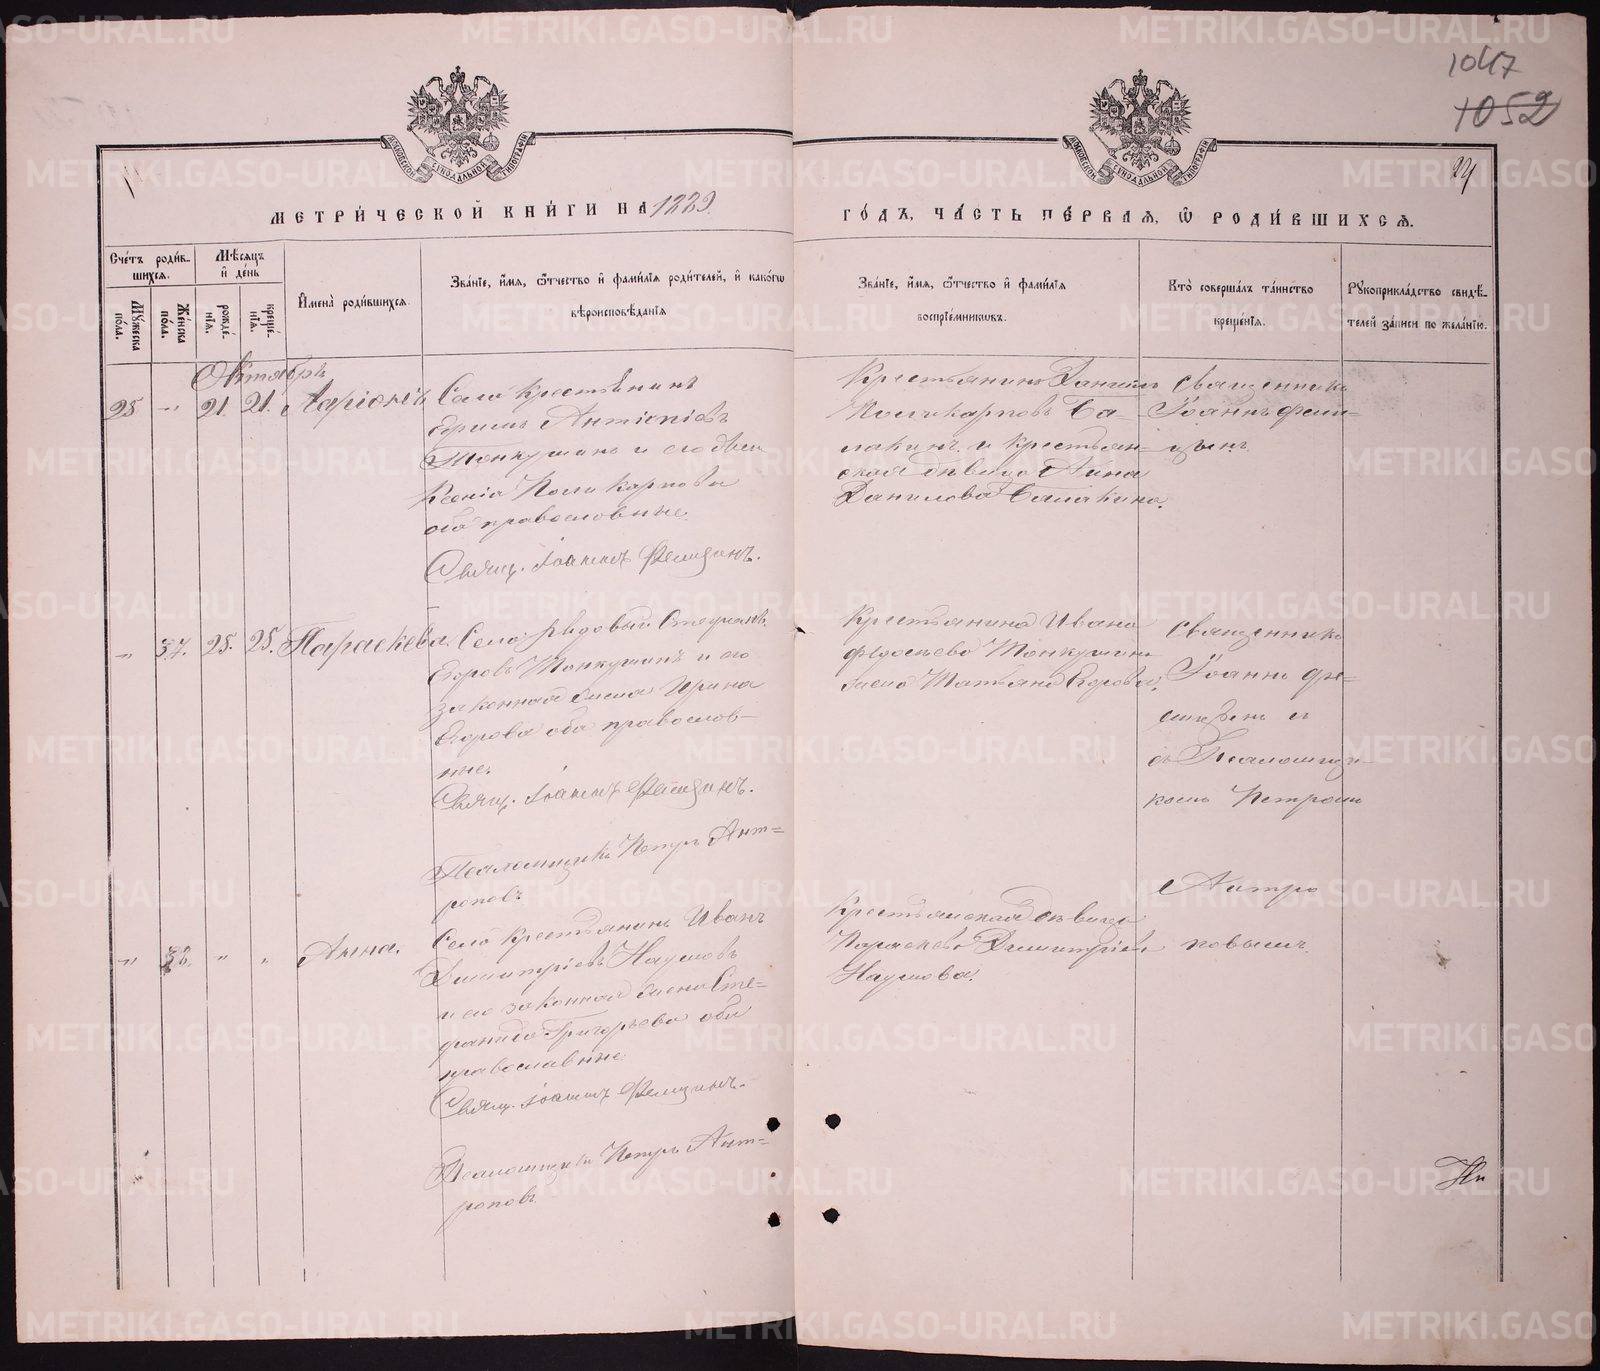 1047
1052
МЕТРИ́ЧЕСКОЙ КНИ́ГИ НА 1889.
ГО́ДЪ, ЧА́СТЬ ПЕ́РВАЯ, Ѿ РОДИ́ВШИХСЯ.
Сче́тъ роди́в-
шихся.
Мꙋ́жеска по́ла.
Же́нска по́ла.
Мѣ́сяцъ и де́нь
рожде́-
нія.
креще́-
нія.
Имена̀ роди́вшихся.
Зва́ніе, и́мя, ѻ҆́тчество и фами́лія роди́телей, и како́гѡ
вѣроисповѣ́данія
Зва́ніе, и́мя, ѻ҆́тчество и фами́лія
воспріе́мникѡвъ.
Кто̀ соверша́лъ та́инство
креще́нія.
Рꙋкоприкла́дство свидѣ́-
телей за́писи по жела́нію.
Октябрь
28 " 21. 21. Ларіонъ
Села крестьянинъ
Ефимъ Антипіевъ
Тонкушинъ и его
Ксенія Поликарпова
оба православные.
Свящ. Іоаннъ
Крестьянинъ Даніилъ
Поликарповъ Ба-
лакинъ и крестьян-
ская дѣвица Анна
Данилова Балакина.
Священникъ
Іоаннъ
" 37. 25. 25. Параскева.
Села рядовый Стефанъ
Егоровъ Тонкушинъ и его
законная жена Ирина
Егорова оба православ-
ные.
Свящ. Іоаннъ
Псаломщикъ Петръ Ант-
роповъ
Крестьянина Ивана
Тонкушина
жена Татьяна Егорова.
Священникъ
Іоаннъ
съ Псаломщи-
комъ Петромъ
Антро
повымъ.
" 38. " " Анна.
Села Крестьянинъ Иванъ
Димитріевъ Наумовъ
и его законная жена Сте-
фанида Григорьева оба
православные.
Свящ. Іоаннъ
Псаломщикъ Петръ Ант-
роповъ.
Крестьянская дѣвица
Параскева Димитріева
Наумова.